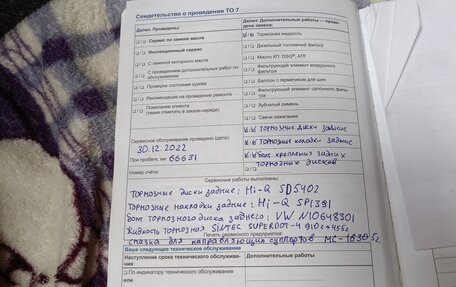 Свидетельство о проведении ТО 7
Да/нет. Проведены:
Сервис по замене масла
Инспекционный сервис
С заменой моторного масла
С проведением дополнительных работ по обслуживанию
Проверка состояния кузова
Рекомендация на проведение ремонта
Пожелания клиента
(также отметить в заказе-наряде)
Сервисное обслуживание проведено (дата):
30.12.2022
При пробеге, км 66631
Номер счёта:
Да/нет. Дополнительные работы — проведена замена:
Тормозная жидкость
Дизельный топливный фильтр
Масло КП: DSG®, ATF
Фильтрующий элемент воздушного фильтра
Баллон с герметиком для шин
Фильтрующий элемент салонного фильтра
Зубчатый ремень
Свечи зажигания
ТОРМОЗНЫЕ ДИСКИ ЗАДНИЕ
ТОРМОЗНЫЕ КОЛОДКИ ЗАДНИЕ
БОЛТ КРЕПЛЕНИЯ ЗАДНИХ
ТОРМОЗНЫХ ДИСКОВ
Сервисные работы выполнены:
ТОРМОЗНЫЕ ДИСКИ ЗАДНИЕ: Hi-Q SD5402
ТОРМОЗНЫЕ НАКЛАДКИ ЗАДНИЕ: Hi-Q SP1391
БОЛТ ТОРМОЗНОГО ДИСКА ЗАДНЕГО: VW N10648301
ЖИДКОСТЬ ТОРМОЗНАЯ SINTEC SUPERDOT-4 910г=455г
Печать сервисного предприятия
СМАЗКА ДЛЯ НАПРАВЛЯЮЩИХ СУППОРТОВ МС-1630-5г
Ваше следующее техническое обслуживание
Наступление срока технического обслуживания
Дополнительные работы
По индикатору технического обслуживания
или